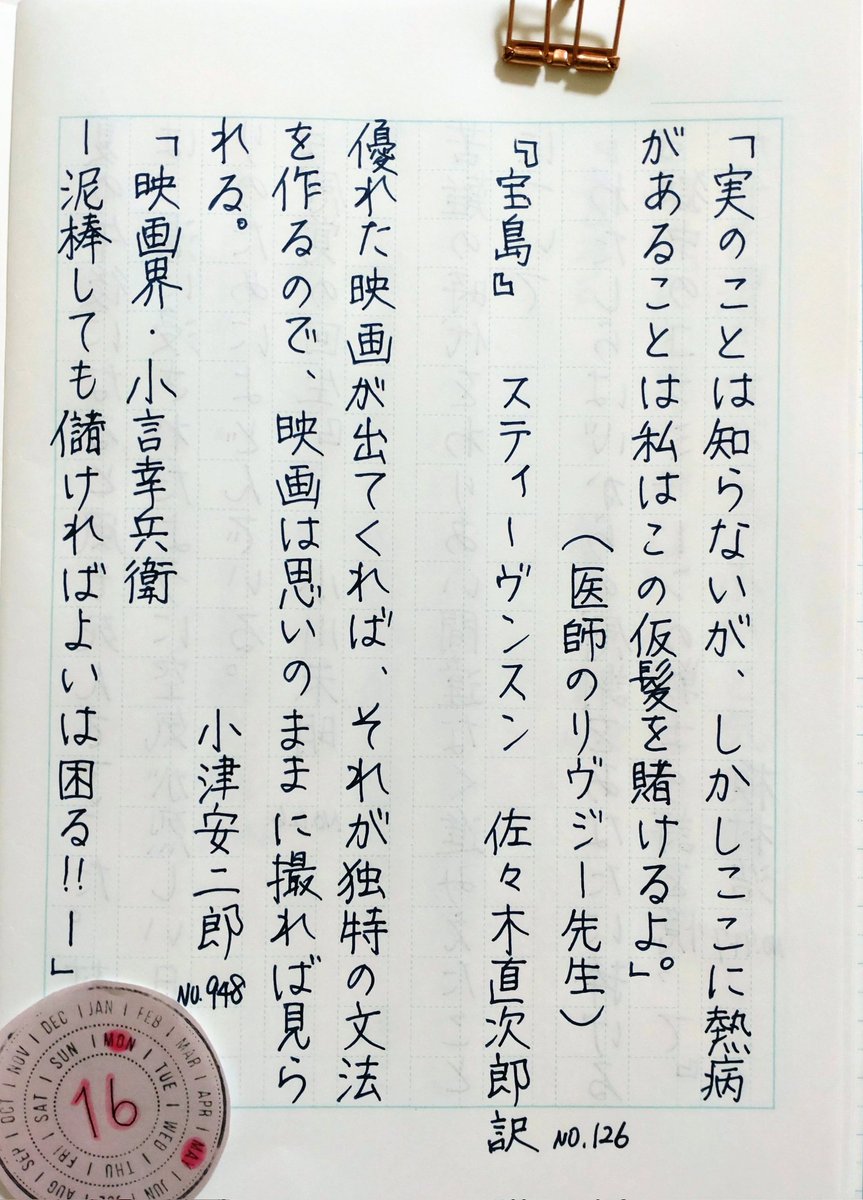 「実のことは知らないが、しかしここに熱病
があることは私はこの仮髪を賭けるよ。」
（医師のリヴジー先生）
『宝島』 スティーヴンスン 佐々木直次郎訳 NO.126
優れた映画が出てくれば、それが独特の文法
を作るので、映画は思いのままに撮れば見ら
れる。 小津安二郎 NO.948
「映画界・小言幸兵衛
ー泥棒しても儲ければよいは困る!!ー」
JAN FEB MAR APR MAY JUN JUL AUG SEP OCT NOV DEC
SUN MON TUE WED THU FRI SAT
16